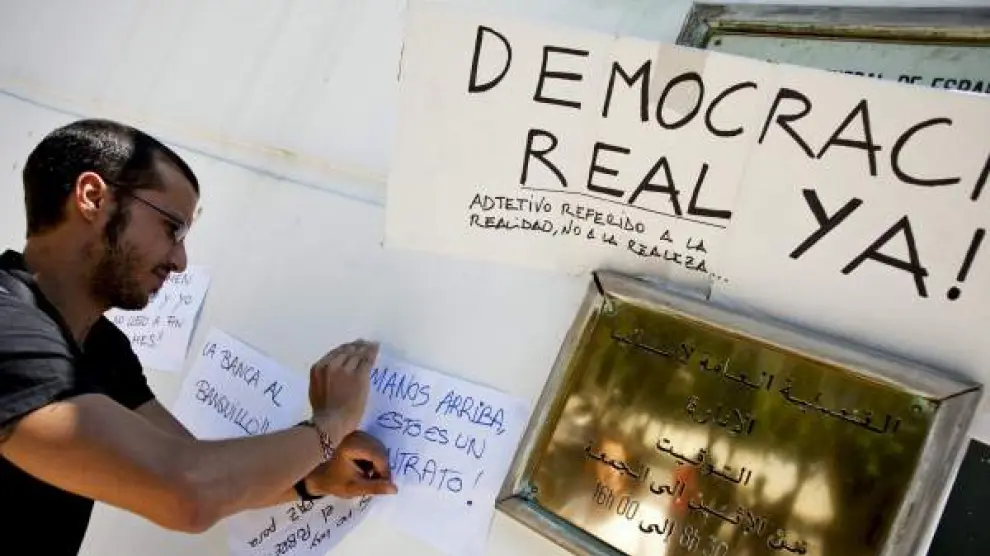 DEMOCRACI
REAL YA!
ADTETIVO REFERIDO A LA
REALIDAD, NO A LA REALEZA...
DE ESPAÑ
Y YO
NO LLEGO A FIN
MES!
LA BANCA AL
BANQUILLO!!
MANOS ARRIBA,
ESTO ES UN
NTRATO!
para
القنصلية العامة لاسبانيا
الإدارة
التوقيت
من الإثنين إلى الجمعة